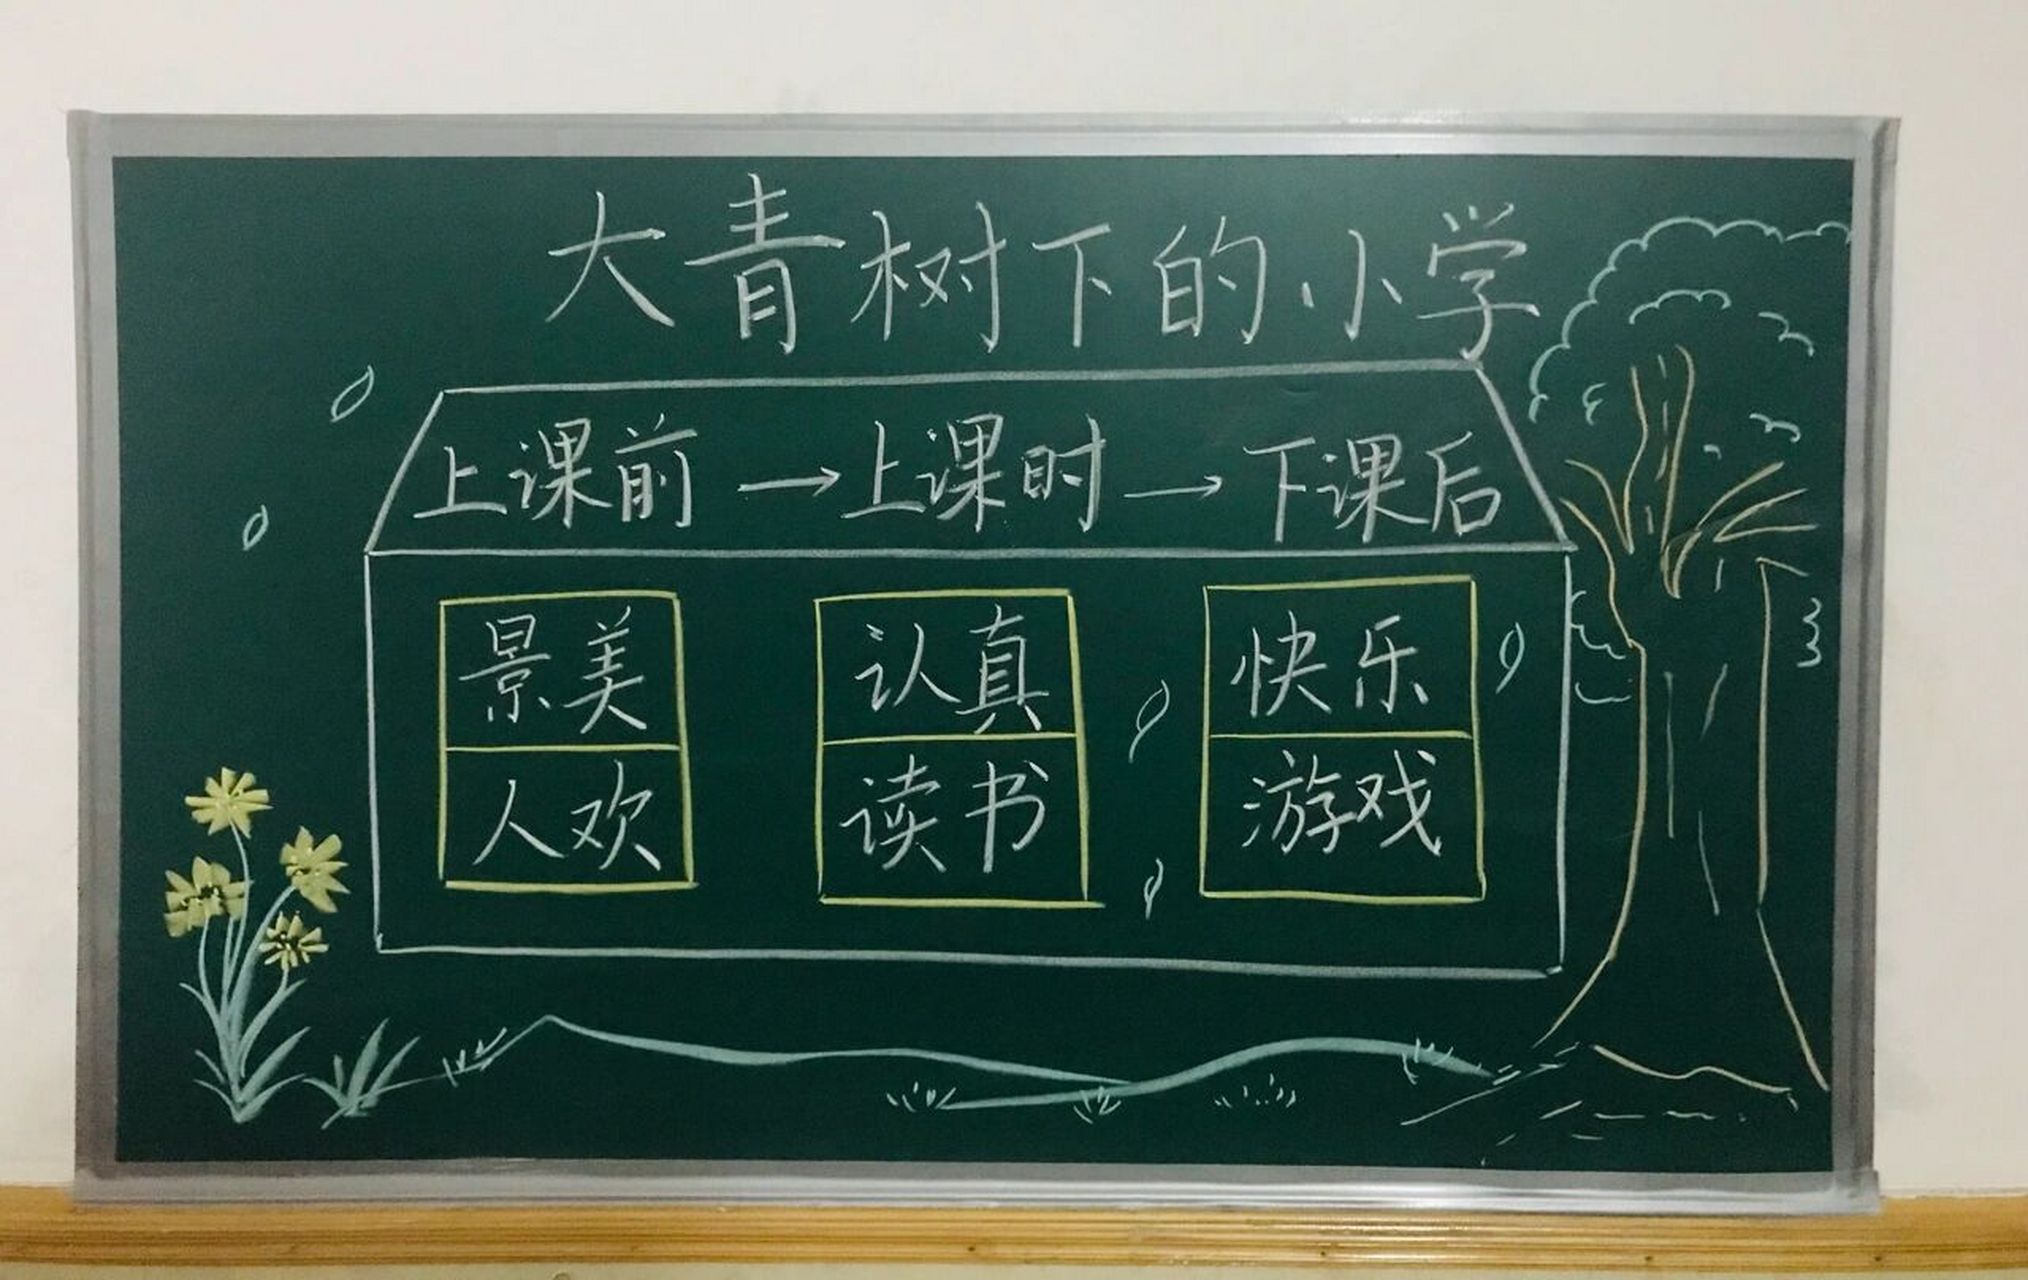 大青树下的小学
上课前→上课时→下课后
景美 认真 快乐
人欢 读书 游戏